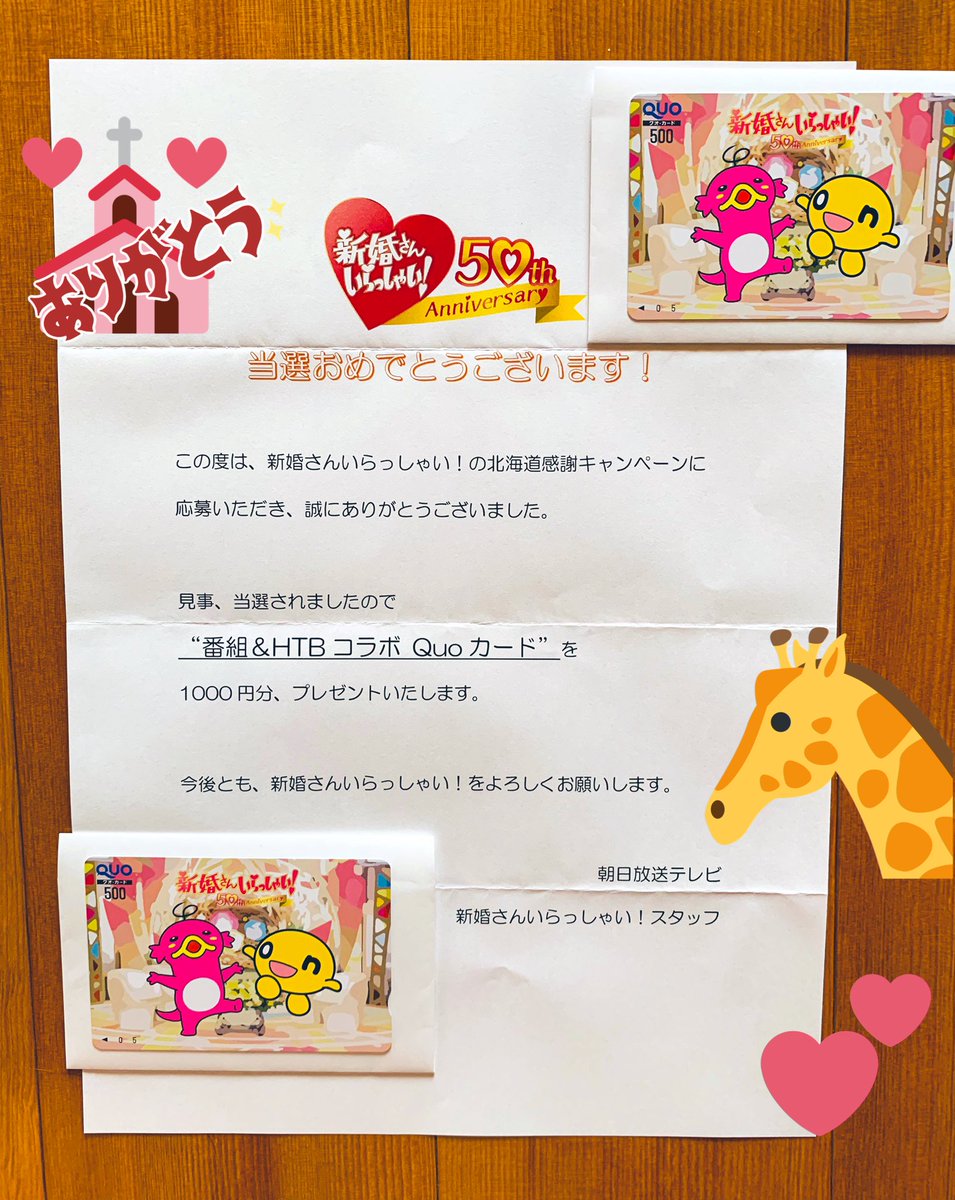 ありがとう
新婚さん
いらっしゃい!
50th
Anniversary
QUO
クオ・カード
500
新婚さんいらっしゃい!
50th Anniversary
on
◀ 05
当選おめでとうございます!
この度は、新婚さんいらっしゃい!の北海道感謝キャンペーンに
応募いただき、誠にありがとうございました。
見事、当選されましたので
“番組&HTBコラボ Quoカード”を
1000円分、プレゼントいたします。
今後とも、新婚さんいらっしゃい!をよろしくお願いします。
朝日放送テレビ
新婚さんいらっしゃい!スタッフ
QUO
クオ・カード
500
新婚さんいらっしゃい!
50th Anniversary
on
◀ 05